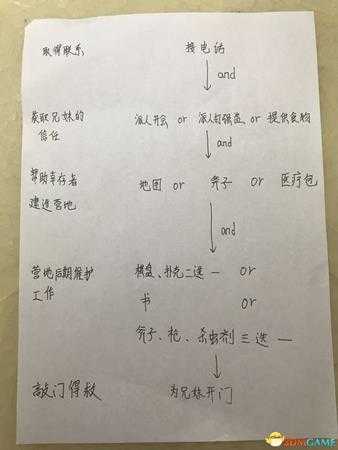 取得联系 接电话
and
获取兄妹的 派人开会 or 派人打强盗 or 提供食物
信任
and
帮助幸存者 地图 or 斧子 or 医疗包
建造营地
and
营地后期维护 棋盘、扑克二选一 or
工作 书 or
斧子、枪、杀虫剂 三选一
敲门得救 为兄妹开门
GAME